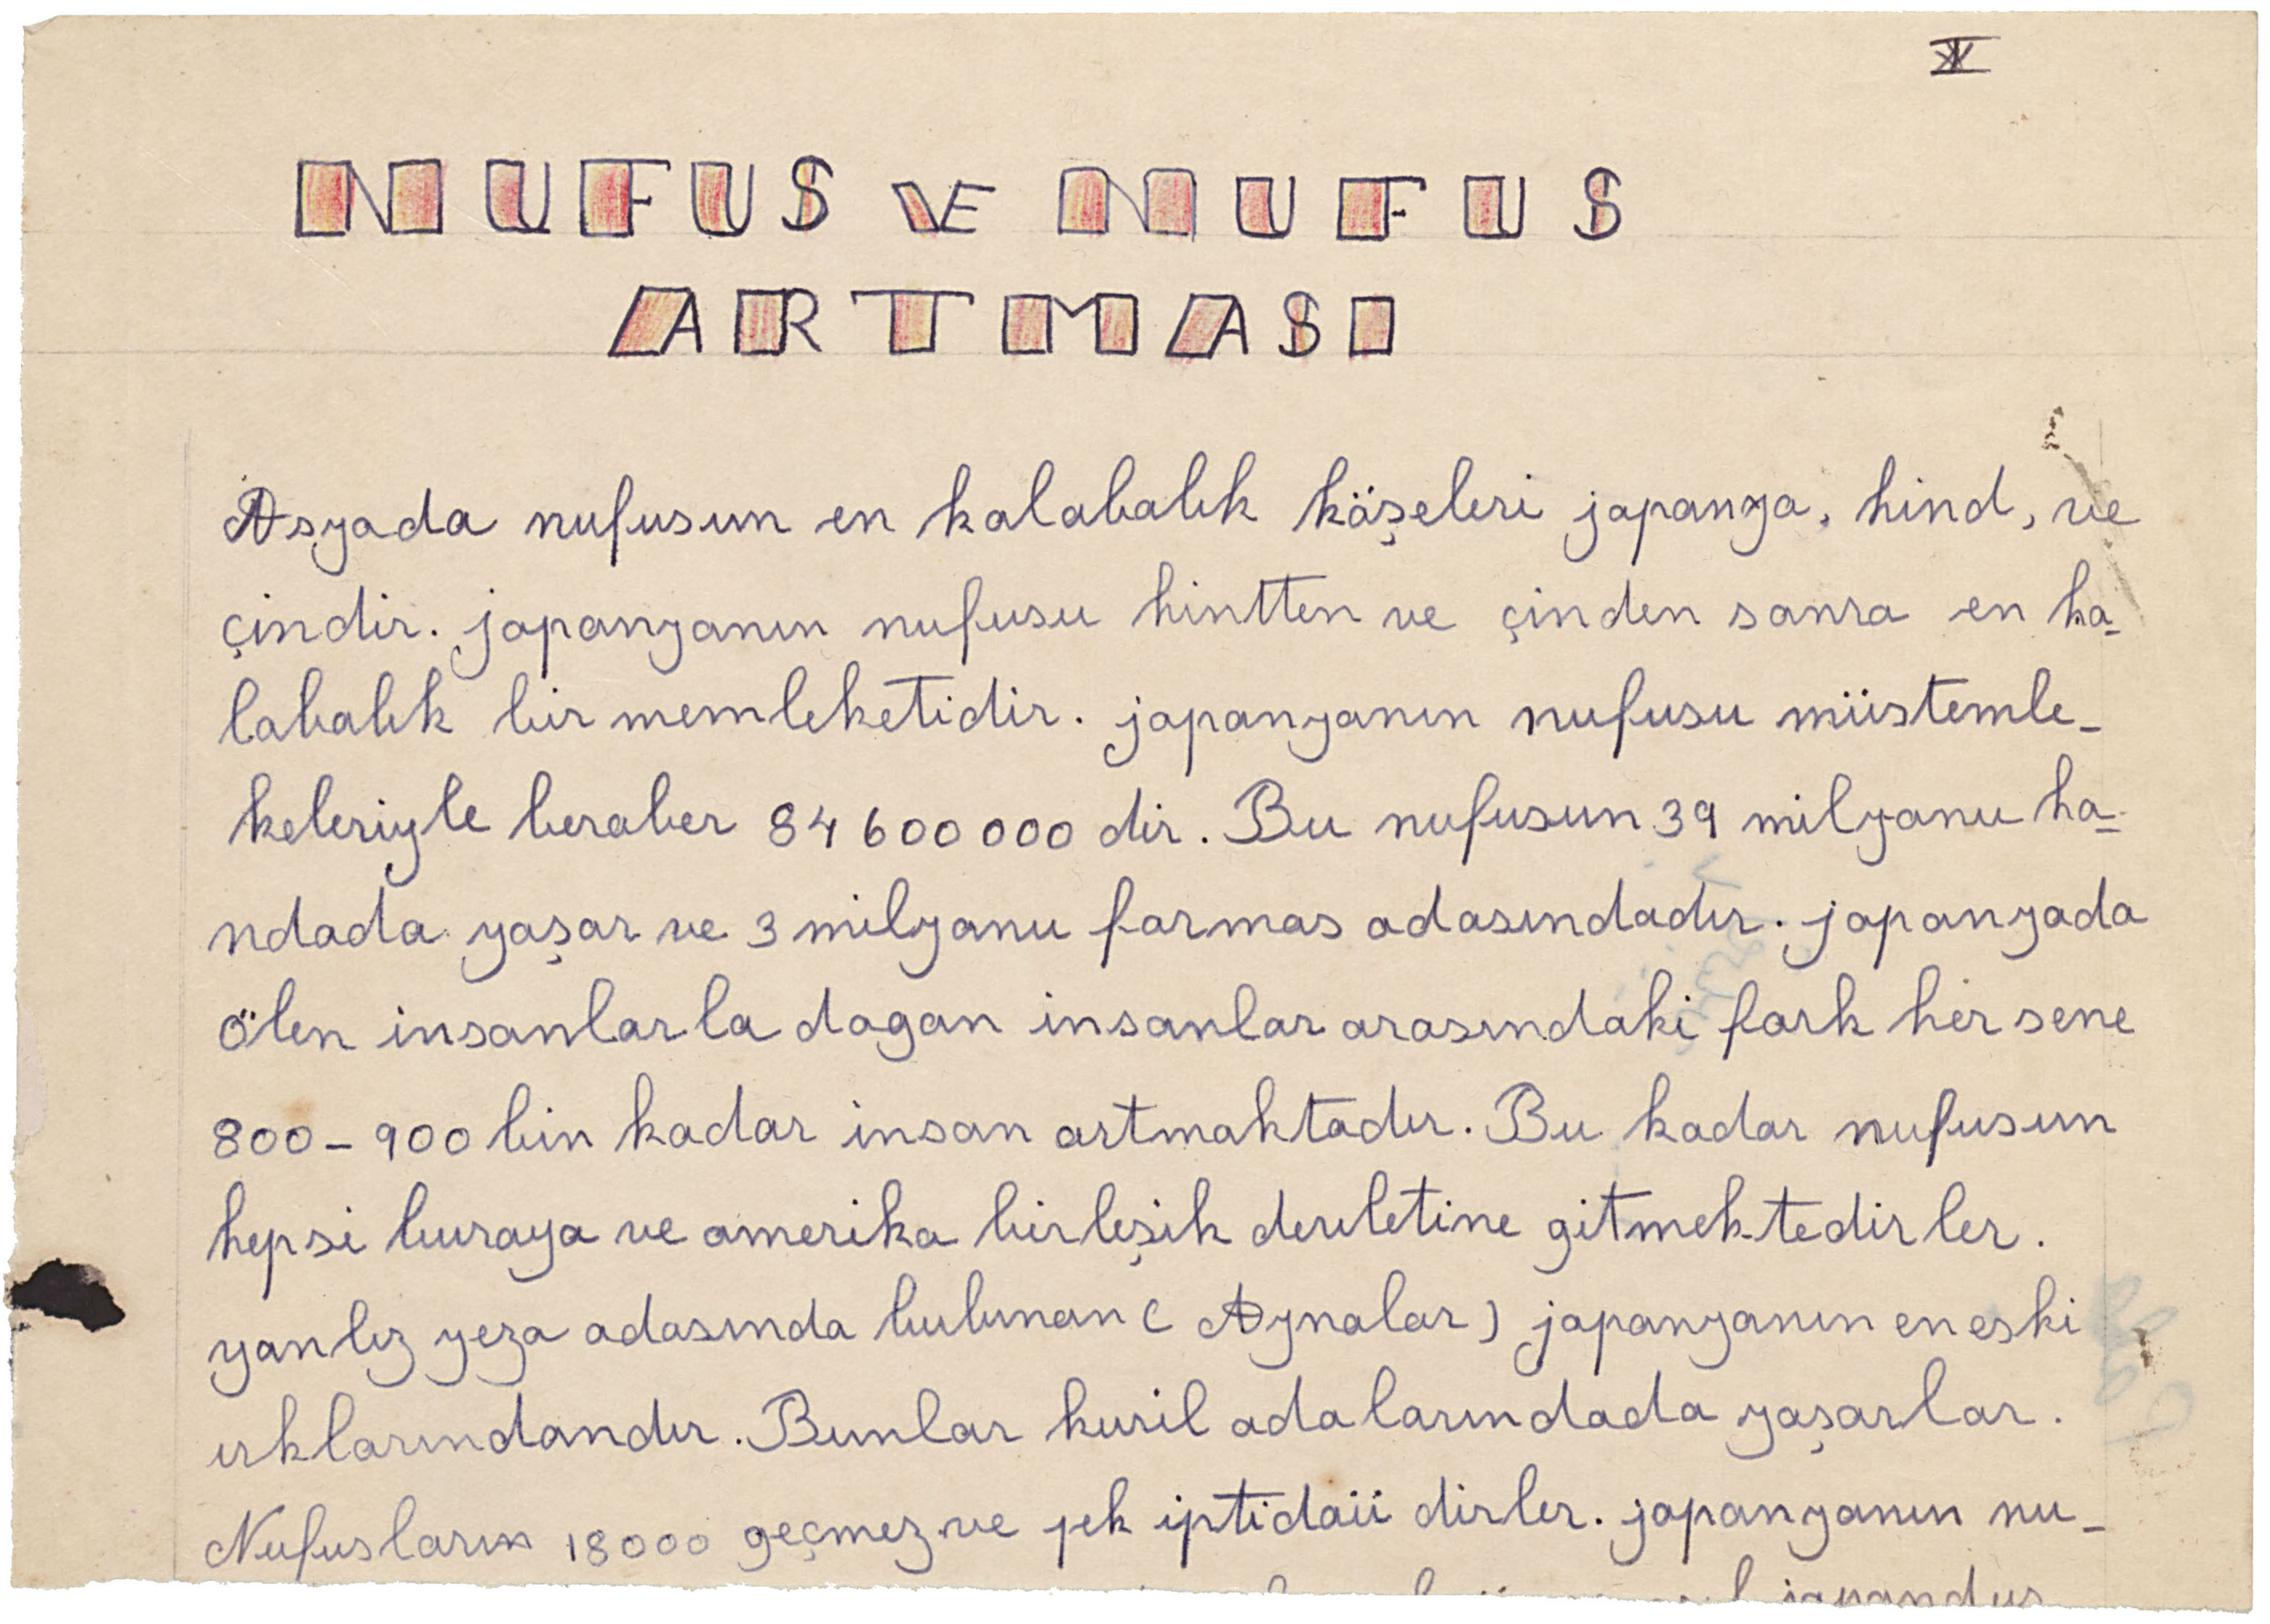 XV
NUFUS VE NUFUS
ARTMASI
Asyada nufusun en kalabalık köşeleri japonya, hind, ve
çindir. japonyanın nufusu hintten ve çinden sonra en ka-
labalık bir memleketidir. japonyanın nufusu müstemle-
keleriyle beraber 84 600 000 dir. Bu nufusun 39 milyonu ho-
ndada yaşar ve 3 milyonu formos adasındadır. japonyada
ölen insanlarla dogan insanlar arasındaki fark her sene
800-900 bin kadar insan artmaktadır. Bu kadar nufusun
hepsi buraya ve amerika birleşik devletine gitmektedirler.
yanlız yezo adasında bulunan (Aynolar) japonyanın en eski
ırklarındandır. Bunlar kuril adalarındada yaşarlar.
Nufusların 18000 geçmez ve pek iptidaii dirler. japonyanın nu-
japondur